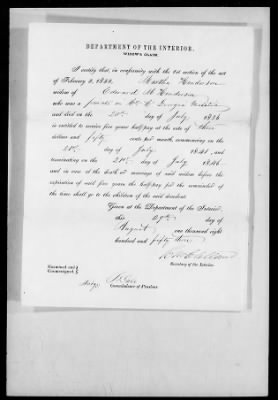 DEPARTMENT OF THE INTERIOR.
WIDOW'S CLAIM.
I certify that, in conformity with the 1st section of the act
of February 3, 1853, Martha Henderson
widow of Edward M Henderson
who was a private in
and died on the 20th day of July 1846
is entitled to receive five years' half-pay at the rate of three
dollars and fifty cents per month, commencing on the
21st day of July 1846, and
terminating on the 21st day of July
and in case of the death or marriage of said widow before the
expiration of said five years the half-pay for the remainder of
the time shall go to the children of the said decedent.
Given at the Department of the Interior,
this 29th day of
August one thousand eight
hundred and fifty three
Secretary of the Interior.
Examined and
Countersigned
Commissioner of Pensions.